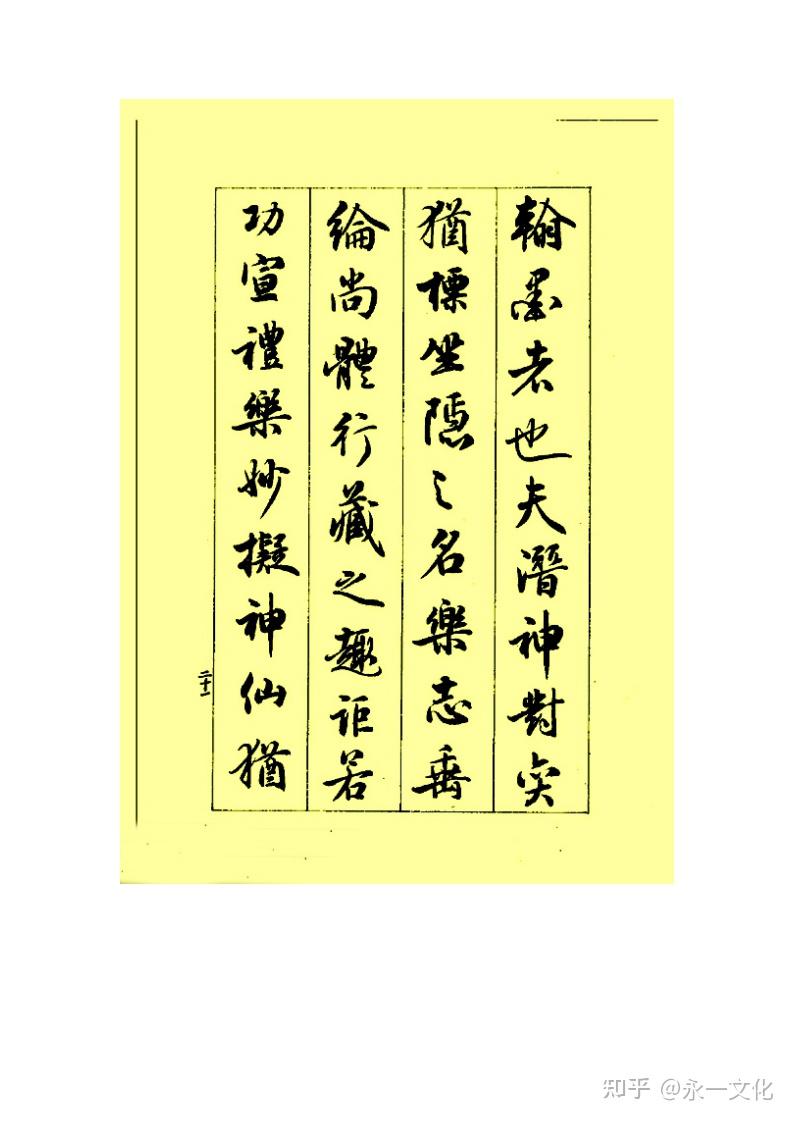 翰墨者也夫潛神對奕
猶標坐隱之名樂志垂
綸尚體行藏之趣詎若
功宣禮樂妙擬神仙猶
二十一
知乎 @永一文化